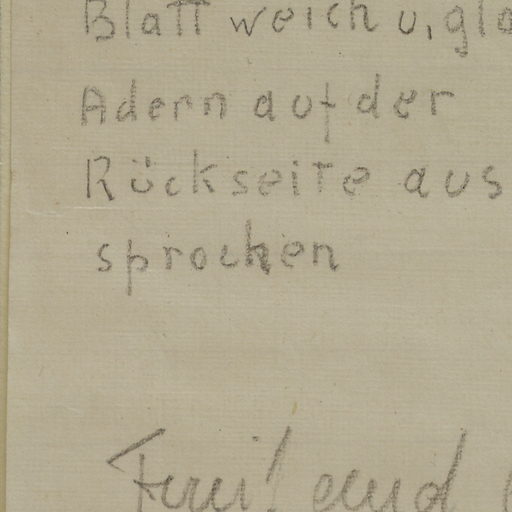 Blatt weich u, gla
Adern auf der
Rückseite aus
sprochen